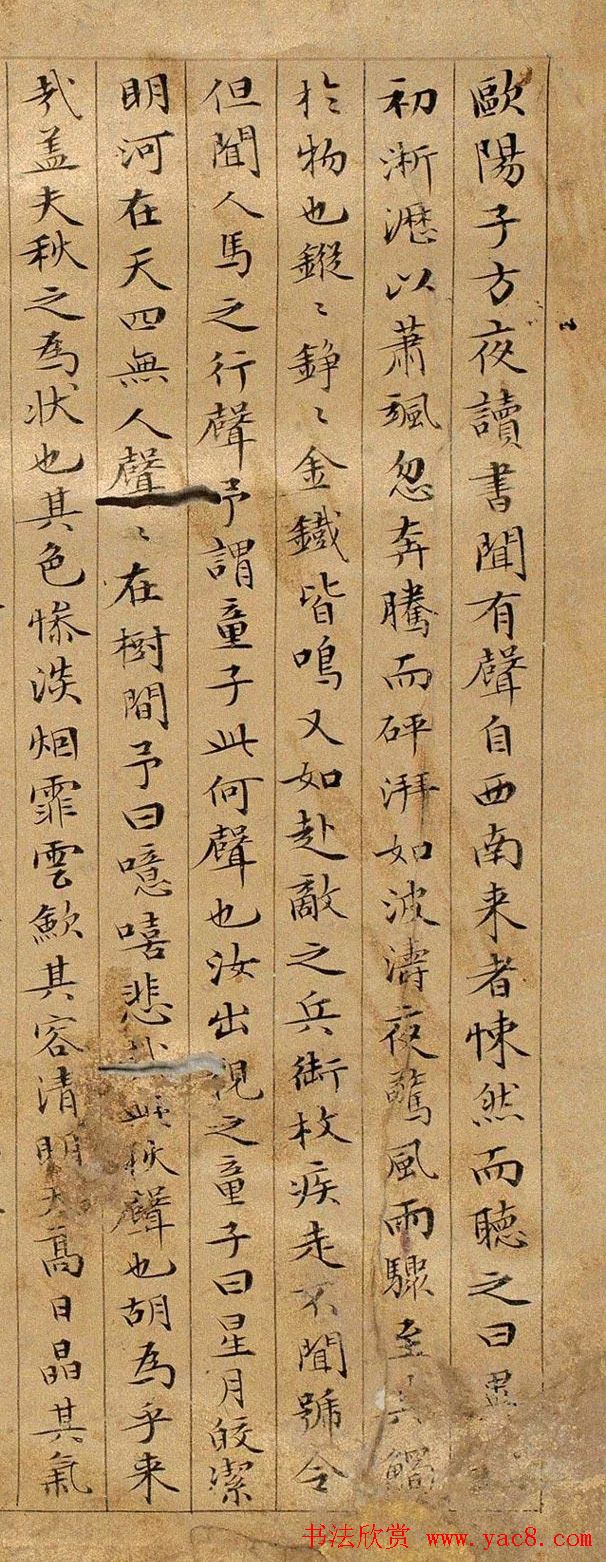 歐陽子方夜讀書聞有聲自西南来者悚然而聴之曰異
初淅瀝以蕭颯忽奔騰而砰湃如波濤夜驚風雨驟至其觸
於物也鏦〻錚〻金鐵皆鳴又如赴敵之兵銜枚疾走不聞號令
但聞人馬之行聲予謂童子此何聲也汝出視之童子曰星月皎潔
明河在天四無人聲〻在樹間予曰噫嘻悲哉此秋聲也胡為乎来
哉盖夫秋之為状也其色惨淡烟霏雲歛其容清明天髙日晶其氣
书法欣赏 www.yac8.com